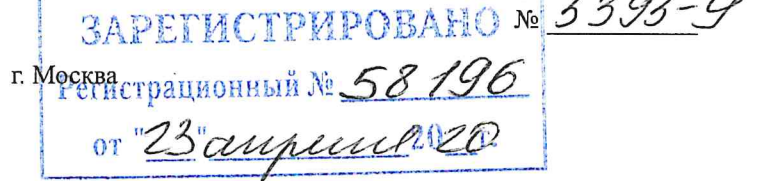 ЗАРЕГИСТРИРОВАНО № 3393-У
г. Москва
Регистрационный № 58196
от "23" апреля 2020 г.